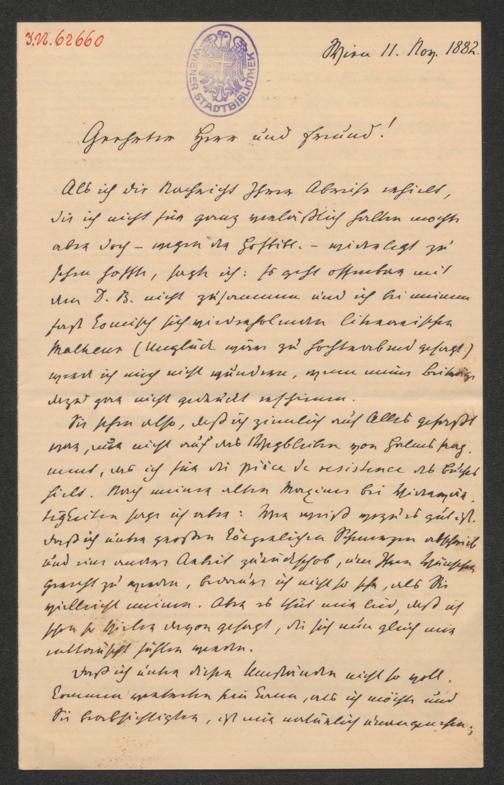 J.N. 62660
WIENER STADTBIBLIOTHEK
Wien 11. Nov. 1882.
Geehrter Herr und Freund!
Als ich die Nachricht Ihrer Abreise erhielt,
die ich nicht für ganz verläßlich halten mochte
aber doch – wegen der – widerlegt zu
sehen hoffte, sagte ich: Es geht offenbar mit
dem D. B. nicht zusammen und ich bei meinem
fast komisch sich wiederholenden literarischen
Malheur (Unglück wäre zu hochtrabend gesagt)
werde ich mich nicht wundern, wenn meine Beiträge
dazu gar nicht gedruckt erscheinen.
Sie sehen also, daß ich ziemlich auf Alles gefaßt
war, nur nicht auf das Wegbleiben von Halms Frag-
ment, das ich für die pièce de resistence des Buches
hielt. Nach meiner alten Maxime bei Widerwär-
tigkeiten sage ich aber: Wer weiß wozu es gut ist.
Daß ich unter großen körperlichen Schmerzen abschrieb
und eine andere Arbeit zurückschob, um Ihren Wünschen
gerecht zu werden, bedaure ich nicht so sehr, als Sie
vielleicht meinen. Aber es thut mir leid, daß ich
schon so Vielen davon gesagt, die sich nun gleich mir
enttäuscht fühlen werden.
Daß ich unter diesen Umständen nicht so voll-
kommen vertreten sein kann, als ich möchte und
Sie beabsichtigten, ist mir natürlich unangenehm;